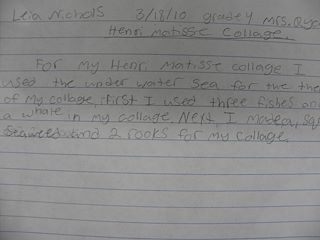 Leia Nichols 3/18/10 grade 4 Mrs.
Henri Matisse Collage.
For my Henri Matisse collage I
used the under water sea for the the
of my collage. First I used three fishes an
a whale in my collage. Next, I made a,
Seaweed and 2 rocks for my collage.